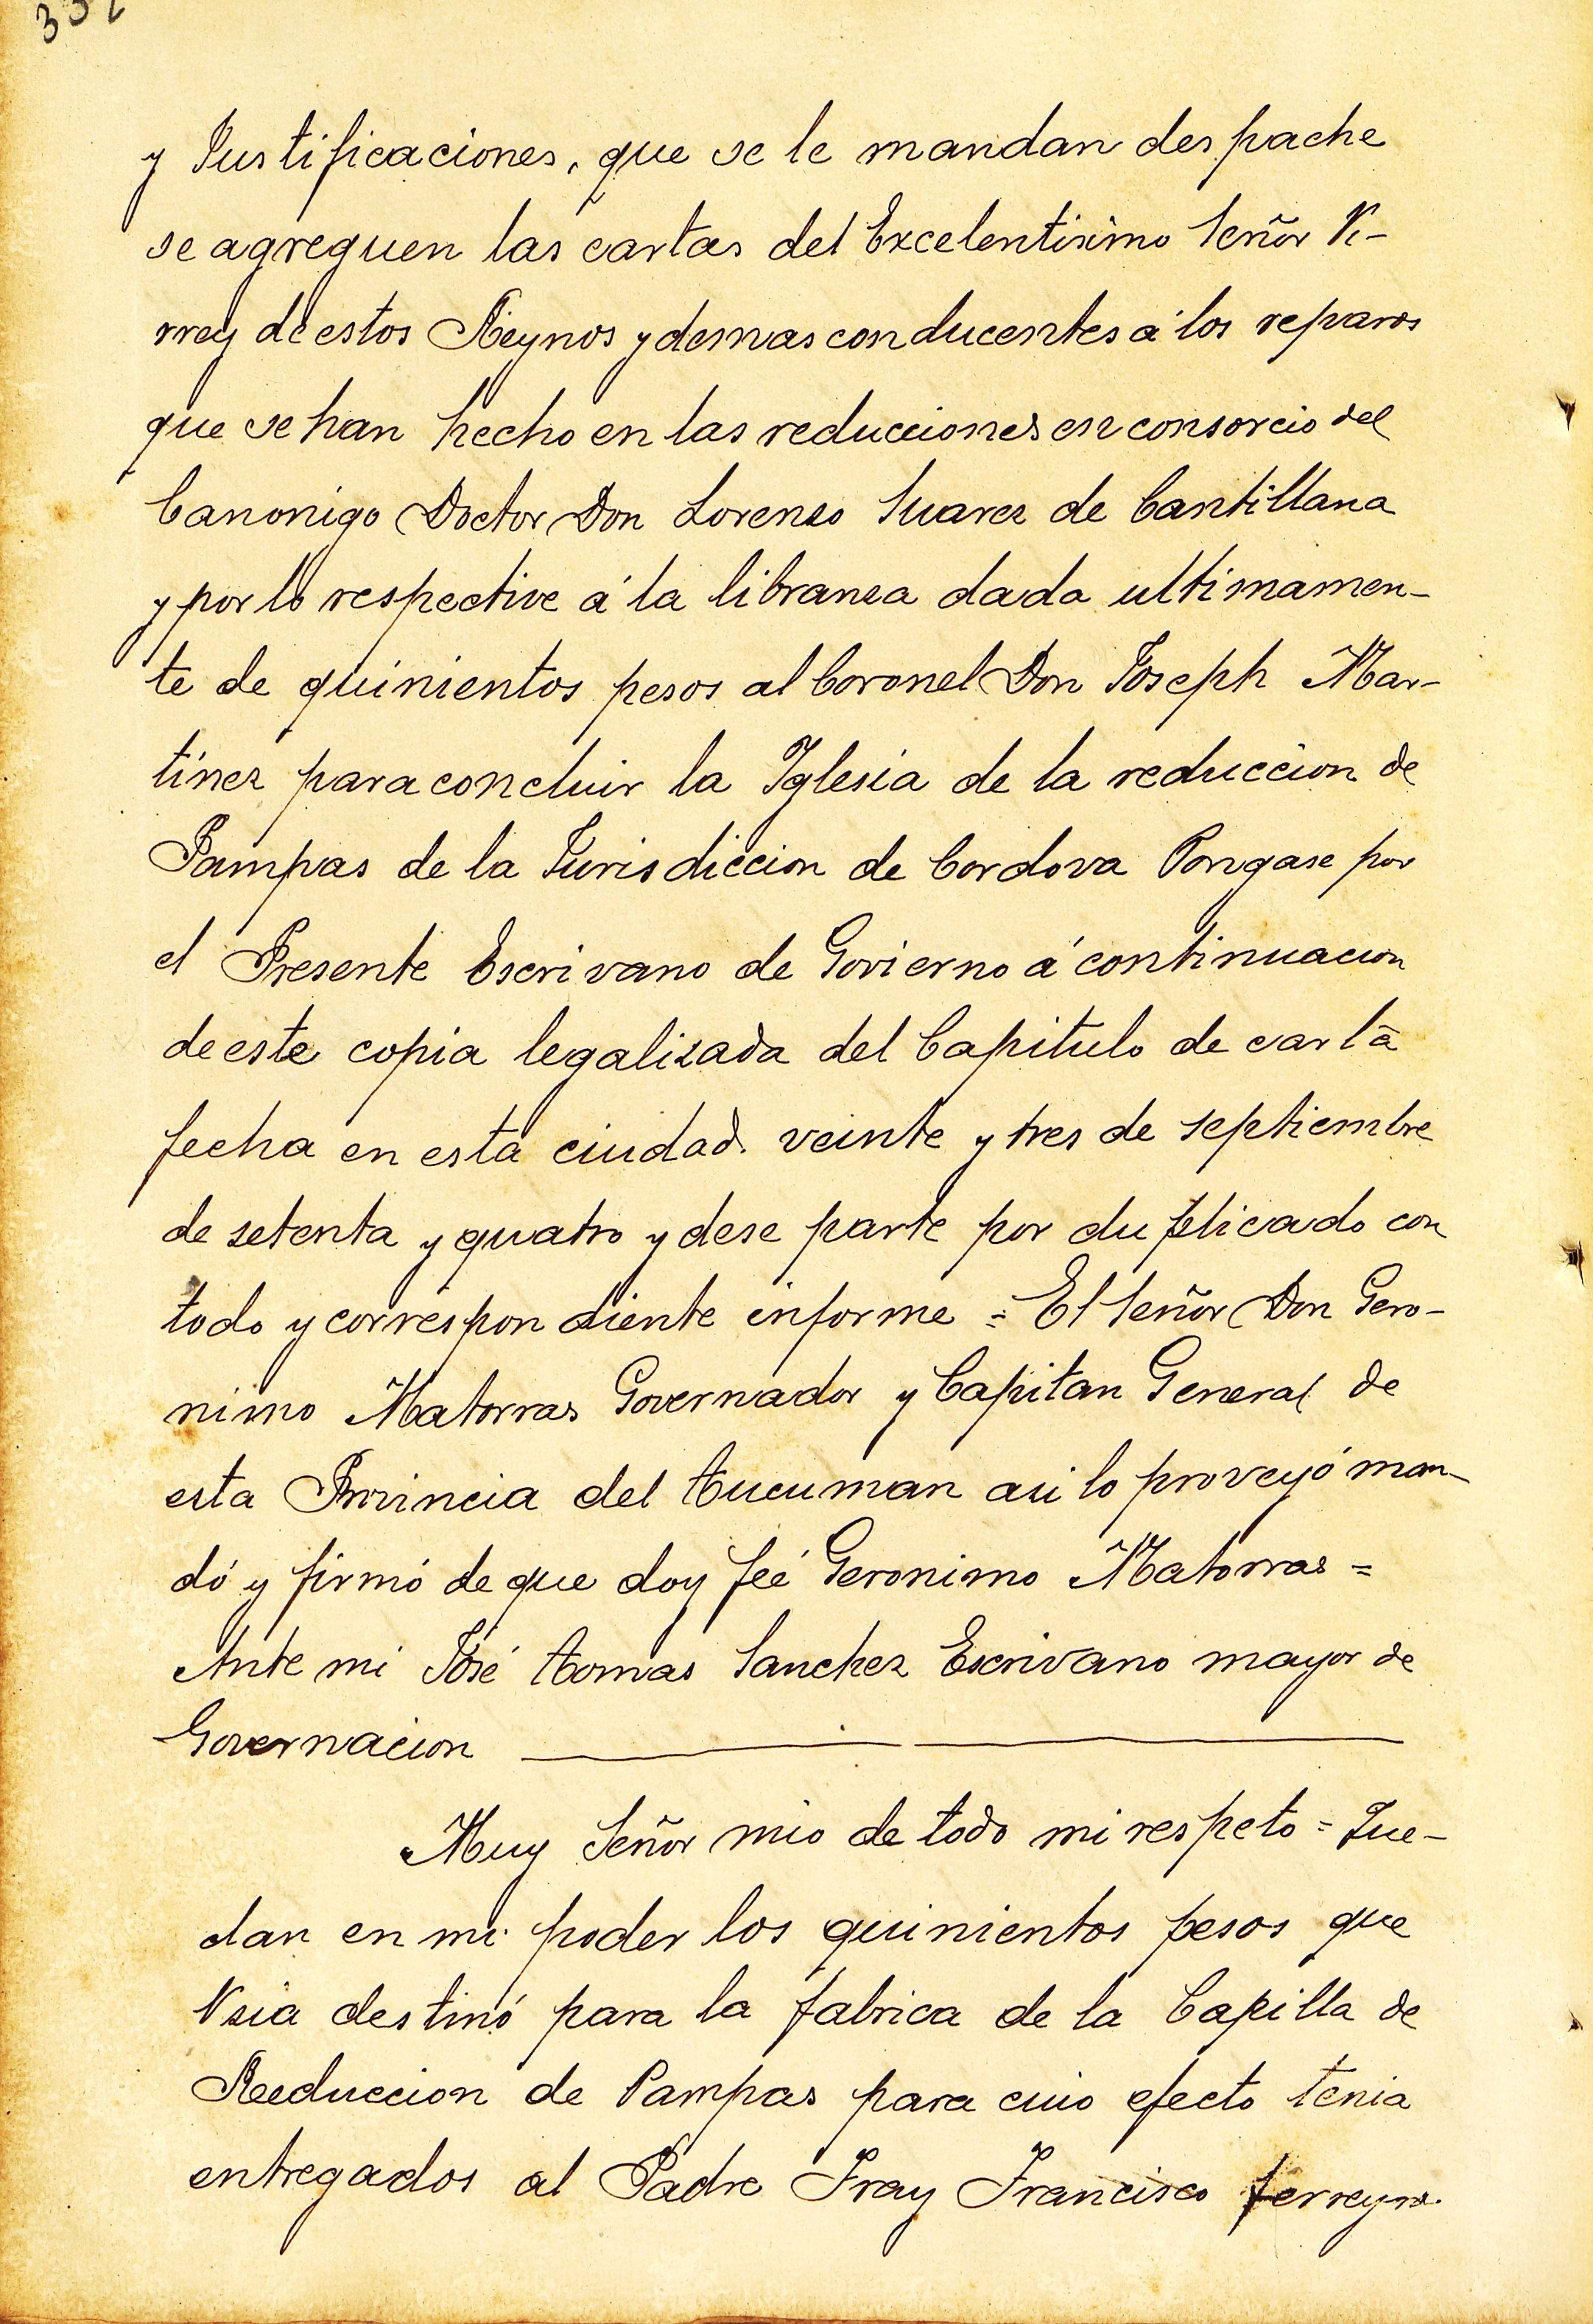 y Justificaciones, que se le mandan despache
se agreguen las cartas del Excelentisimo Señor Vi-
rrey de estos Reynos y demas conducentes á los reparos
que se han hecho en las reducciones en consorcio del
Canonigo Doctor Don Lorenzo Suarez de Cantillana
y por lo respective á la libranza dada ultimamen-
te de quinientos pesos al Coronel Don Joseph Mar-
tinez para concluir la Iglesia de la reduccion de
Pampas de la Jurisdiccion de Cordova Pongase por
el Presente Escrivano de Govierno á continuacion
de este copia legalizada del Capitulo de carta
fecha en esta ciudad. veinte y tres de septiembre
de setenta y quatro y dese parte por duplicado con
todo y correspondiente informe = El Señor Don Gero-
nimo Matorras Governador y Capitan General de
esta Provincia del Tucuman asi lo proveyó man-
dó y firmó de que doy feé Geronimo Matorras =
Ante mi José Tomas Sanchez Escrivano mayor de
Governacion
Muy Señor mio de todo mi respeto = Que-
dan en mi poder los quinientos pesos que
Vsia destinó para la fabrica de la Capilla de
Reeduccion de Pampas para cuio efecto tenia
entregados al Padre Fray Francisco ferreyra.